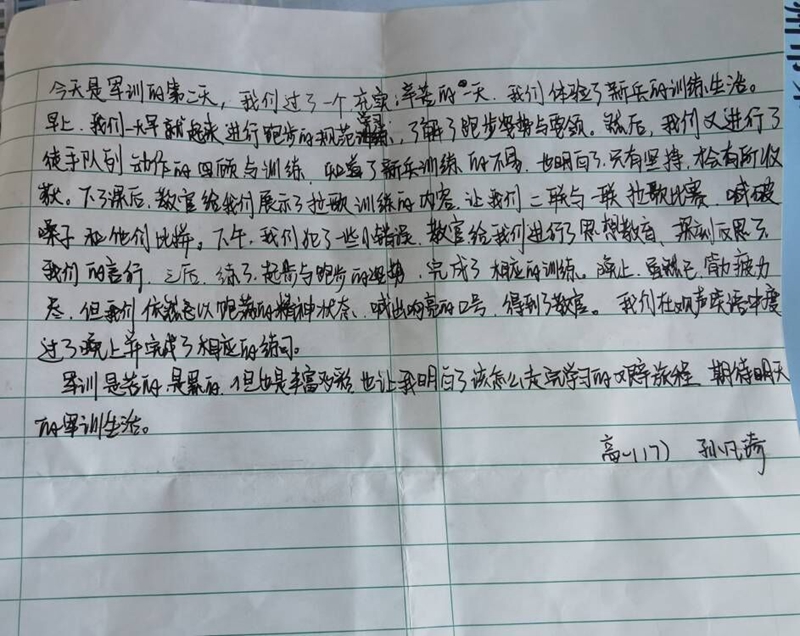 今天是军训的第二天，我们过了一个充实辛苦的一天，我们体验了新兵的训练生活。
早上，我们一大早就起来进行跑步的规范学习训练，了解了跑步姿势与要领。然后，我们又进行了
徒手队列动作的回顾与训练，知道了新兵训练的不易，也明白了只有坚持，才会有所收
获。下了课后，教官给我们展示了拉歌训练的内容，让我们二联与一联拉歌比赛，喊破
嗓子和他们比拼。下午，我们犯了一些小错误，教官给我们进行了思想教育，深刻反思了
我们的言行，之后，练了起步与跑步的姿势，完成了相应的训练。晚上，虽然已筋力疲力
尽，但我们依然以饱满的精神状态，喊出响亮的口号，得到了教官。我们在欢声笑语中度
过了晚上并完成了相应的练习。
军训是苦的，是累的，但也是丰富多彩，也让我明白了该怎么走完学习的艰辛旅程，期待明天
的军训生活。
高一(17) 孙凡